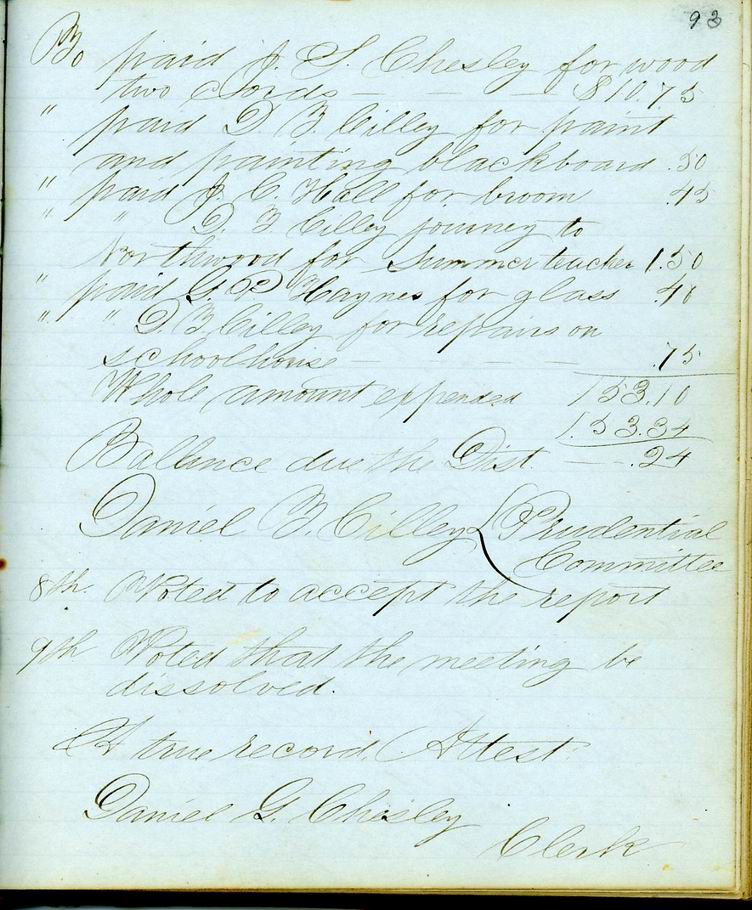 93
To paid J. S. Chesley for wood
two Cords — — — $10.75
" paid D. F. Cilley for paint
and painting blackboard .50
" paid J. C. Hall for broom .45
" " D. F. Cilley journey to
Northwood for Summer teacher 1.50
" paid G. P. Haynes for glass .40
" " D. F. Cilley for repairs on
schoolhouse — — — .75
Whole amount expended 153.10
153.34
Ballance due the Dist. — .24
Daniel F. Cilley { Prudential
Committee
8th. Voted to accept the report
9th Voted that the meeting be
dissolved.
A true record, Attest:
Daniel G. Chesley
Clerk